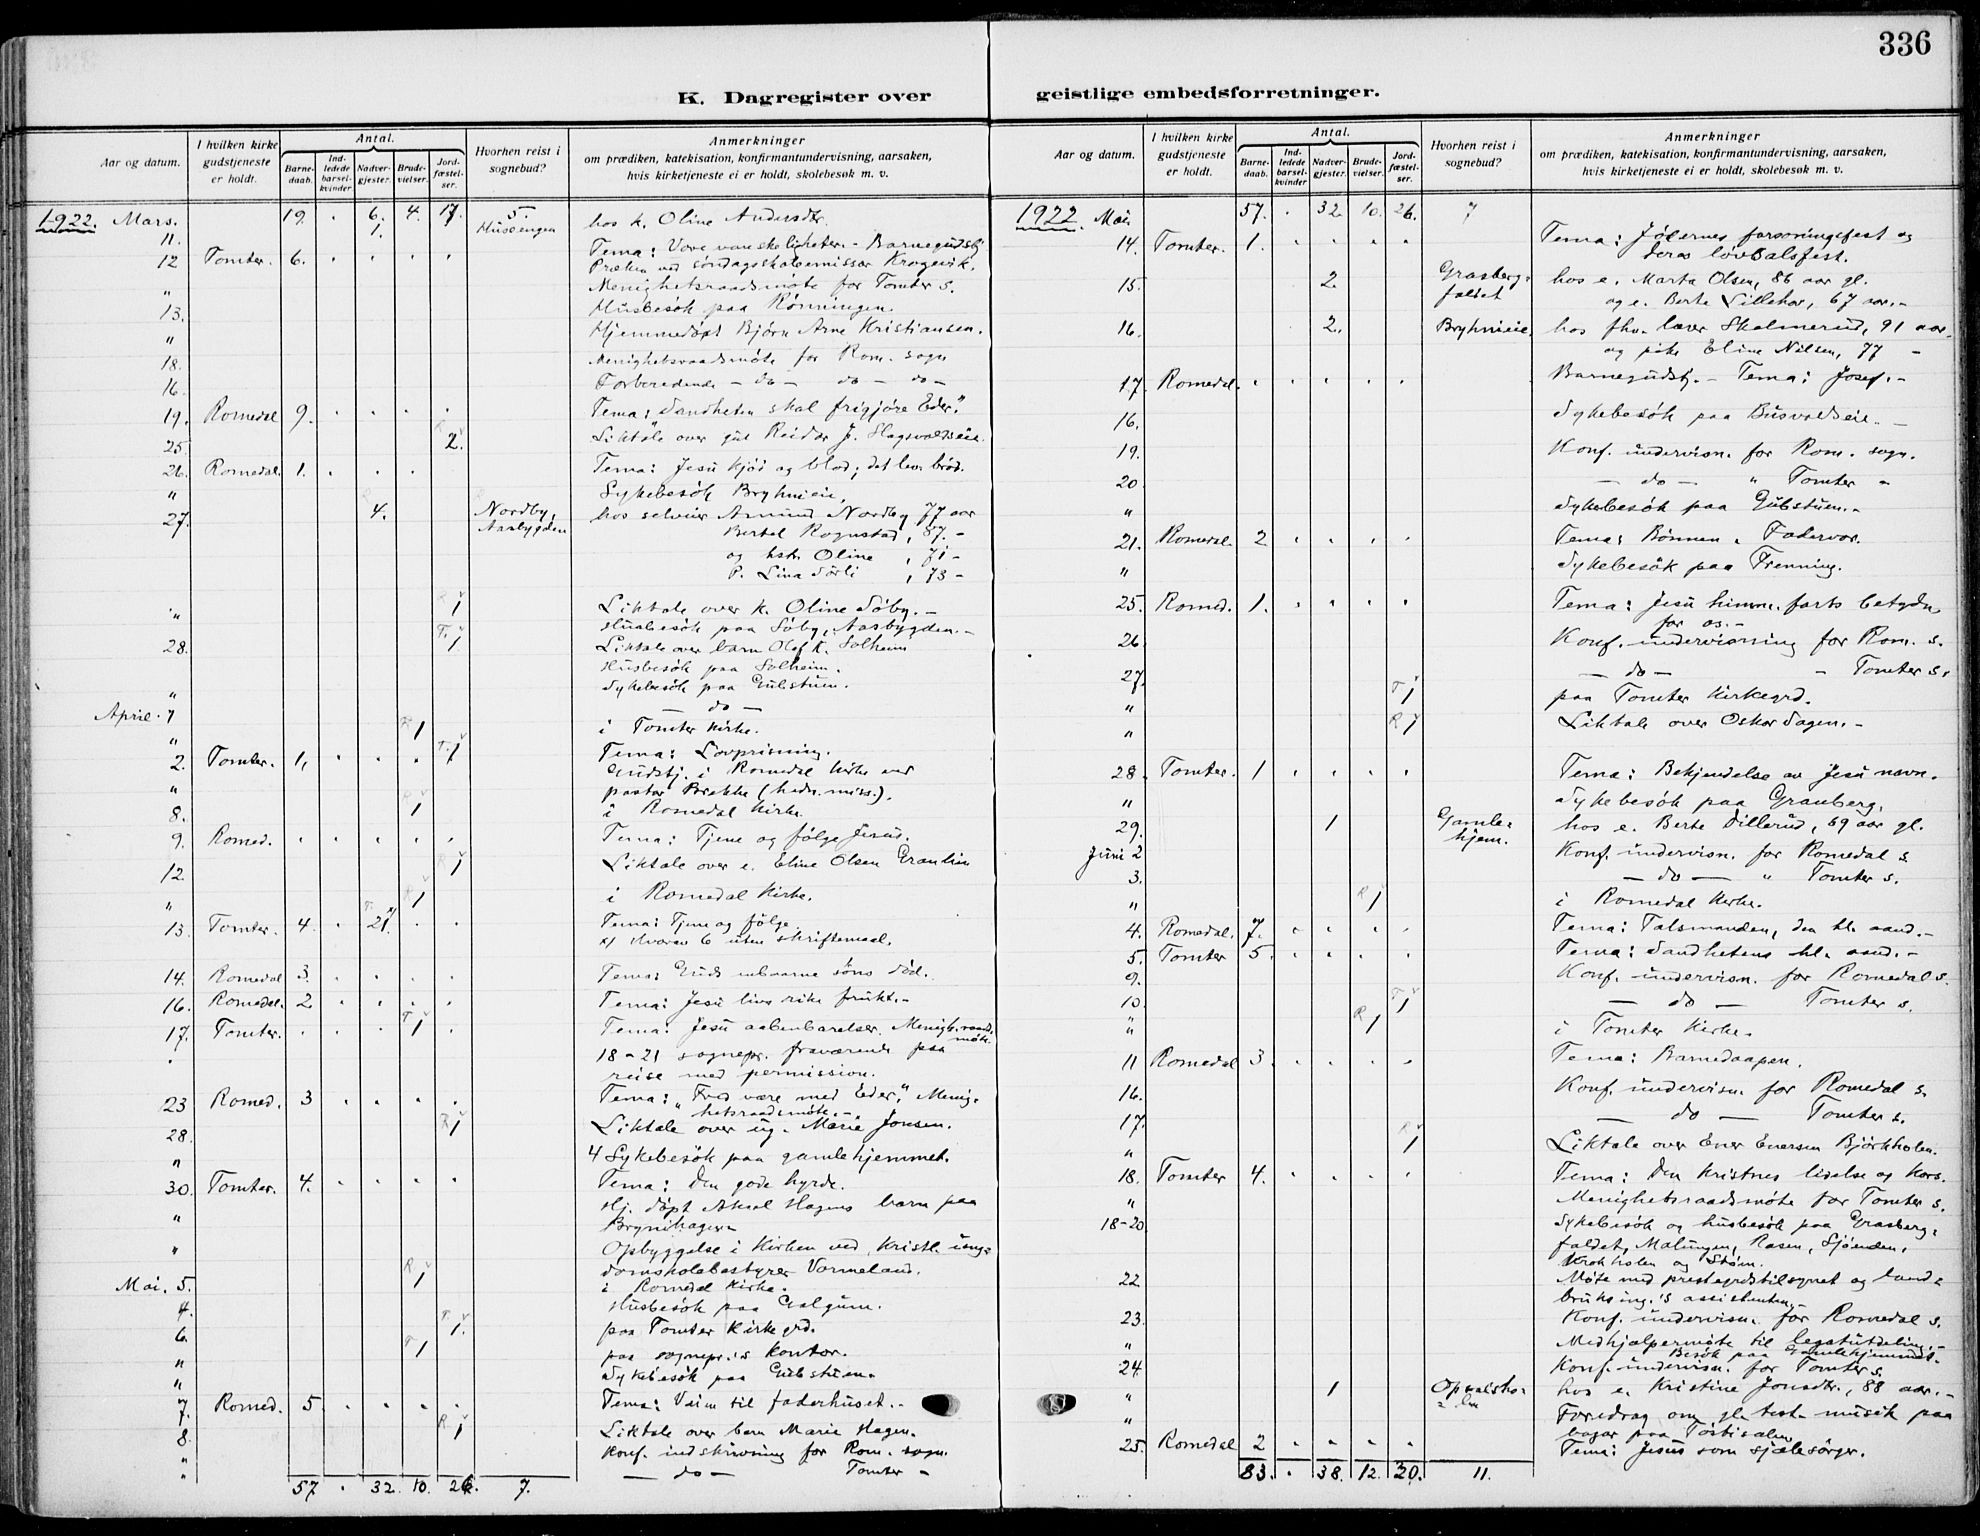 336
K. Dagregister over geistlige embedsforretninger.
Aar og datum. I hvilken kirke gudstjeneste er holdt. Antal. Barnedaab. Indledede barselkvinder Nadvergjester. Brudevielser. Jordfæstelser. Hvorhen reist i sognebud? Anmerkninger om prædiken, katekisation, konfirmantundervisning, aarsaken, hvis kirketjeneste ei er holdt, skolebesøk m. v.
1922. Mars. 19. . 6. 4. 17. 5
11. 1. hos k. Oline Andersdtr.
12 Tomter. 6. . . . . Tema: Vore vanskeligheter. - Barnegudstj.
Præken ved søndagsskoleemissær
" Menighetsraadsmöte for Tomter s.
13. Husbesök paa Rönningen.
" Hjemmedöpt Björn Arne Kristiansen.
18. Menighetsraadsmöte for Rom. sogn
16. Forberedende - do - do - do -
19. Romedal 9. . . . . Tema: "Sandheten skal frigjöre Eder."
25. 2. Liktale over gut Reidar J.
26. Romedal. 1. . . . Tema: Jesu kjöd og blod; det lev. bröd.
" Sykebesök Bryhnieie.
27. 4. Nordby, Aasbygden hos selveier Amund Nordby 77 aar
Bertel Rognstad, 87. -
og hstr. Oline , 71 -
P. Lina Sörli , 73 -
" R 1 Liktale over k. Oline Söby. -
Husbesök paa Söby, Aasbygden. -
28. T. 1 Liktale over barn Olof K. Solheim
Husbesök paa Solheim.
Sykebesök paa Gubstuen.
" - do -
April. 1 R 1 i Tomter Kirke.
2. Tomter. 1. . . . T. 1 Tema: Lovprisning.
Gudstj. i Romedal Kirke ved
" pastor Brekke (hedn. miss.).
8. R 1 i Romedal Kirke.
9. Romed. . . . . . Tema: Tjene og fölge Jesus.
12. R 1 Liktale over e. Eline Olsen
" R 1 i Romedal Kirke.
13. Tomter. 4. . 21. x) . . Tema: Tjene og fölge.
x) Hvorav 6 uten skriftemaal.
14. Romedal 3. . . . . Tema: Guds enbaarne söns död.
16. Romedal. 2. . . . . Tema: Jesu livs rike frukt. -
17. Tomter. . . . T 1 . Tema: Jesu aabenbarelser. Menigh. raadsmöte.
18-21 sognepr. fraværende paa
reise med permission.
23 Romed. 3 . . . . Tema: "Fred være med Eder." Menighetsraadsmöte. -
28. R 1 Liktale over ug. Marie Jonsen.
" 4 Sykebesök paa gamlehjemmet.
30. Tomter. 4. . . . . Tema: Den gode hyrde.
Hj. döpt Aksel Hagens barn paa
" Brynihagen
" Opbyggelse i Kirken ved Kristl. ungdomsskolebestyrer Vormeland.
Mai. 5. R 1 i Romedal Kirke.
4. Husbesök paa Galgum.
6. T 1. paa Tomter Kirkegrd.
" T 1 paa sognepr.s kontor.
" Sykebesök paa Gubstuen.
7. Romed. 5 . . . . Tema: Veien til faderhuset. -
8. R 1 Liktale over barn Marie Hagen.
" Konf. indskrivning for Rom. sogn.
" - do - Tomter -
57 . 32. 10. 26. 7.
Aar og datum. I hvilken kirke gudstjeneste er holdt. Antal. Barnedaab. Indledede barselkvinder Nadvergjester. Brudevielser. Jordfæstelser. Hvorhen reist i sognebud? Anmerkninger om prædiken, katekisation, konfirmantundervisning, aarsaken, hvis kirketjeneste ei er holdt, skolebesøk m. v.
1922. Mai 57. . 32. 10. 26. 7
14. Tomter. 1. . . . . Tema: Jödernes forsoningsfest og
deres lövsalsfest.
15. 2. Grasbergfaldet hos e. Marta Olsen, 86 aar gl.
og e. Berte 67 aar. -
16. 2. Bryhnieie. hos fhv. lærer Skolmerud, 91 aar.
og pike Eline Nilsen, 77 -
17. Romedal. . . . . . Barnegudstj. - Tema: Josef. -
16. Sykebesök paa
19. Konf. undervisn. for Rom. sogn.
20 - do - " Tomter -
" Sykebesök paa Gubstuen. -
21. Romedal. 2 . . . . Tema: Bönnen. Fadervor.
" Sykebesök paa Frenning.
25. Romed. 1. . . . . Tema: Jesu himmelfarts betydn.
for os. -
26. Konf. undervisning for Rom. s.
27. - do - - Tomter s.
" T 1 paa Tomter Kirkegrd.
" R 1 Liktale over Oskar Sagen. -
28. Tomter. 1 . . . . Tema: Bekjendelse av Jesu navn.
" Sykebesök paa Granberg.
29. 1 Gamlehjem. hos e. Berte Dillerud, 69 aar gl.
Juni 2 Konf. undervisn. for Romedal s.
3. - do - " Tomter s.
" R 1 i Romedal Kirke.
4. Romedal. 7. . . . . Tema: Talsmanden, den hl. aand. -
5. Tomter 5. . . . . Tema: Sandhetens hl. aand. -
9. Konf. undervisn. for Romedal s.
10. T 1 - do - Tomter s.
" R 1 i Tomter Kirke.
11 Romedal 3. . . . . Tema: Barnedaapen.
16. Konf. undervisn. for Romedal s.
17. - do - Tomter s.
" R 1 Liktale over Ener Enersen Björkholen.
18. Tomter 4. . . . . Tema: Den Kristnes lidelse og Kors.
" Menighetsraadsmöte for Tomter s.
18-20 Sykebesök og husbesök paa Grasbergfaldet, Malungen, Rasen, Sjöenden,
Krokholen og Stöm.
22. Möte med prestegrdstilsynet og landbruksing.'s assistenten. -
23. Konf. undervisn. for Romedal s.
" Medhjælpermöte til legatutdeling. -
Besök paa Gamlehjemmet.
24. Konf. undervisn. for Tomter s.
" 1 hos e. Kristine Jonsdtr., 88 aar. -
" Foredrag om gl. test. musik paa
bazar paa Tostisalen
25. Romedal 2 . . . . Tema: Jesus som sjælesörger.
83. . 38. 12. 20. 11.